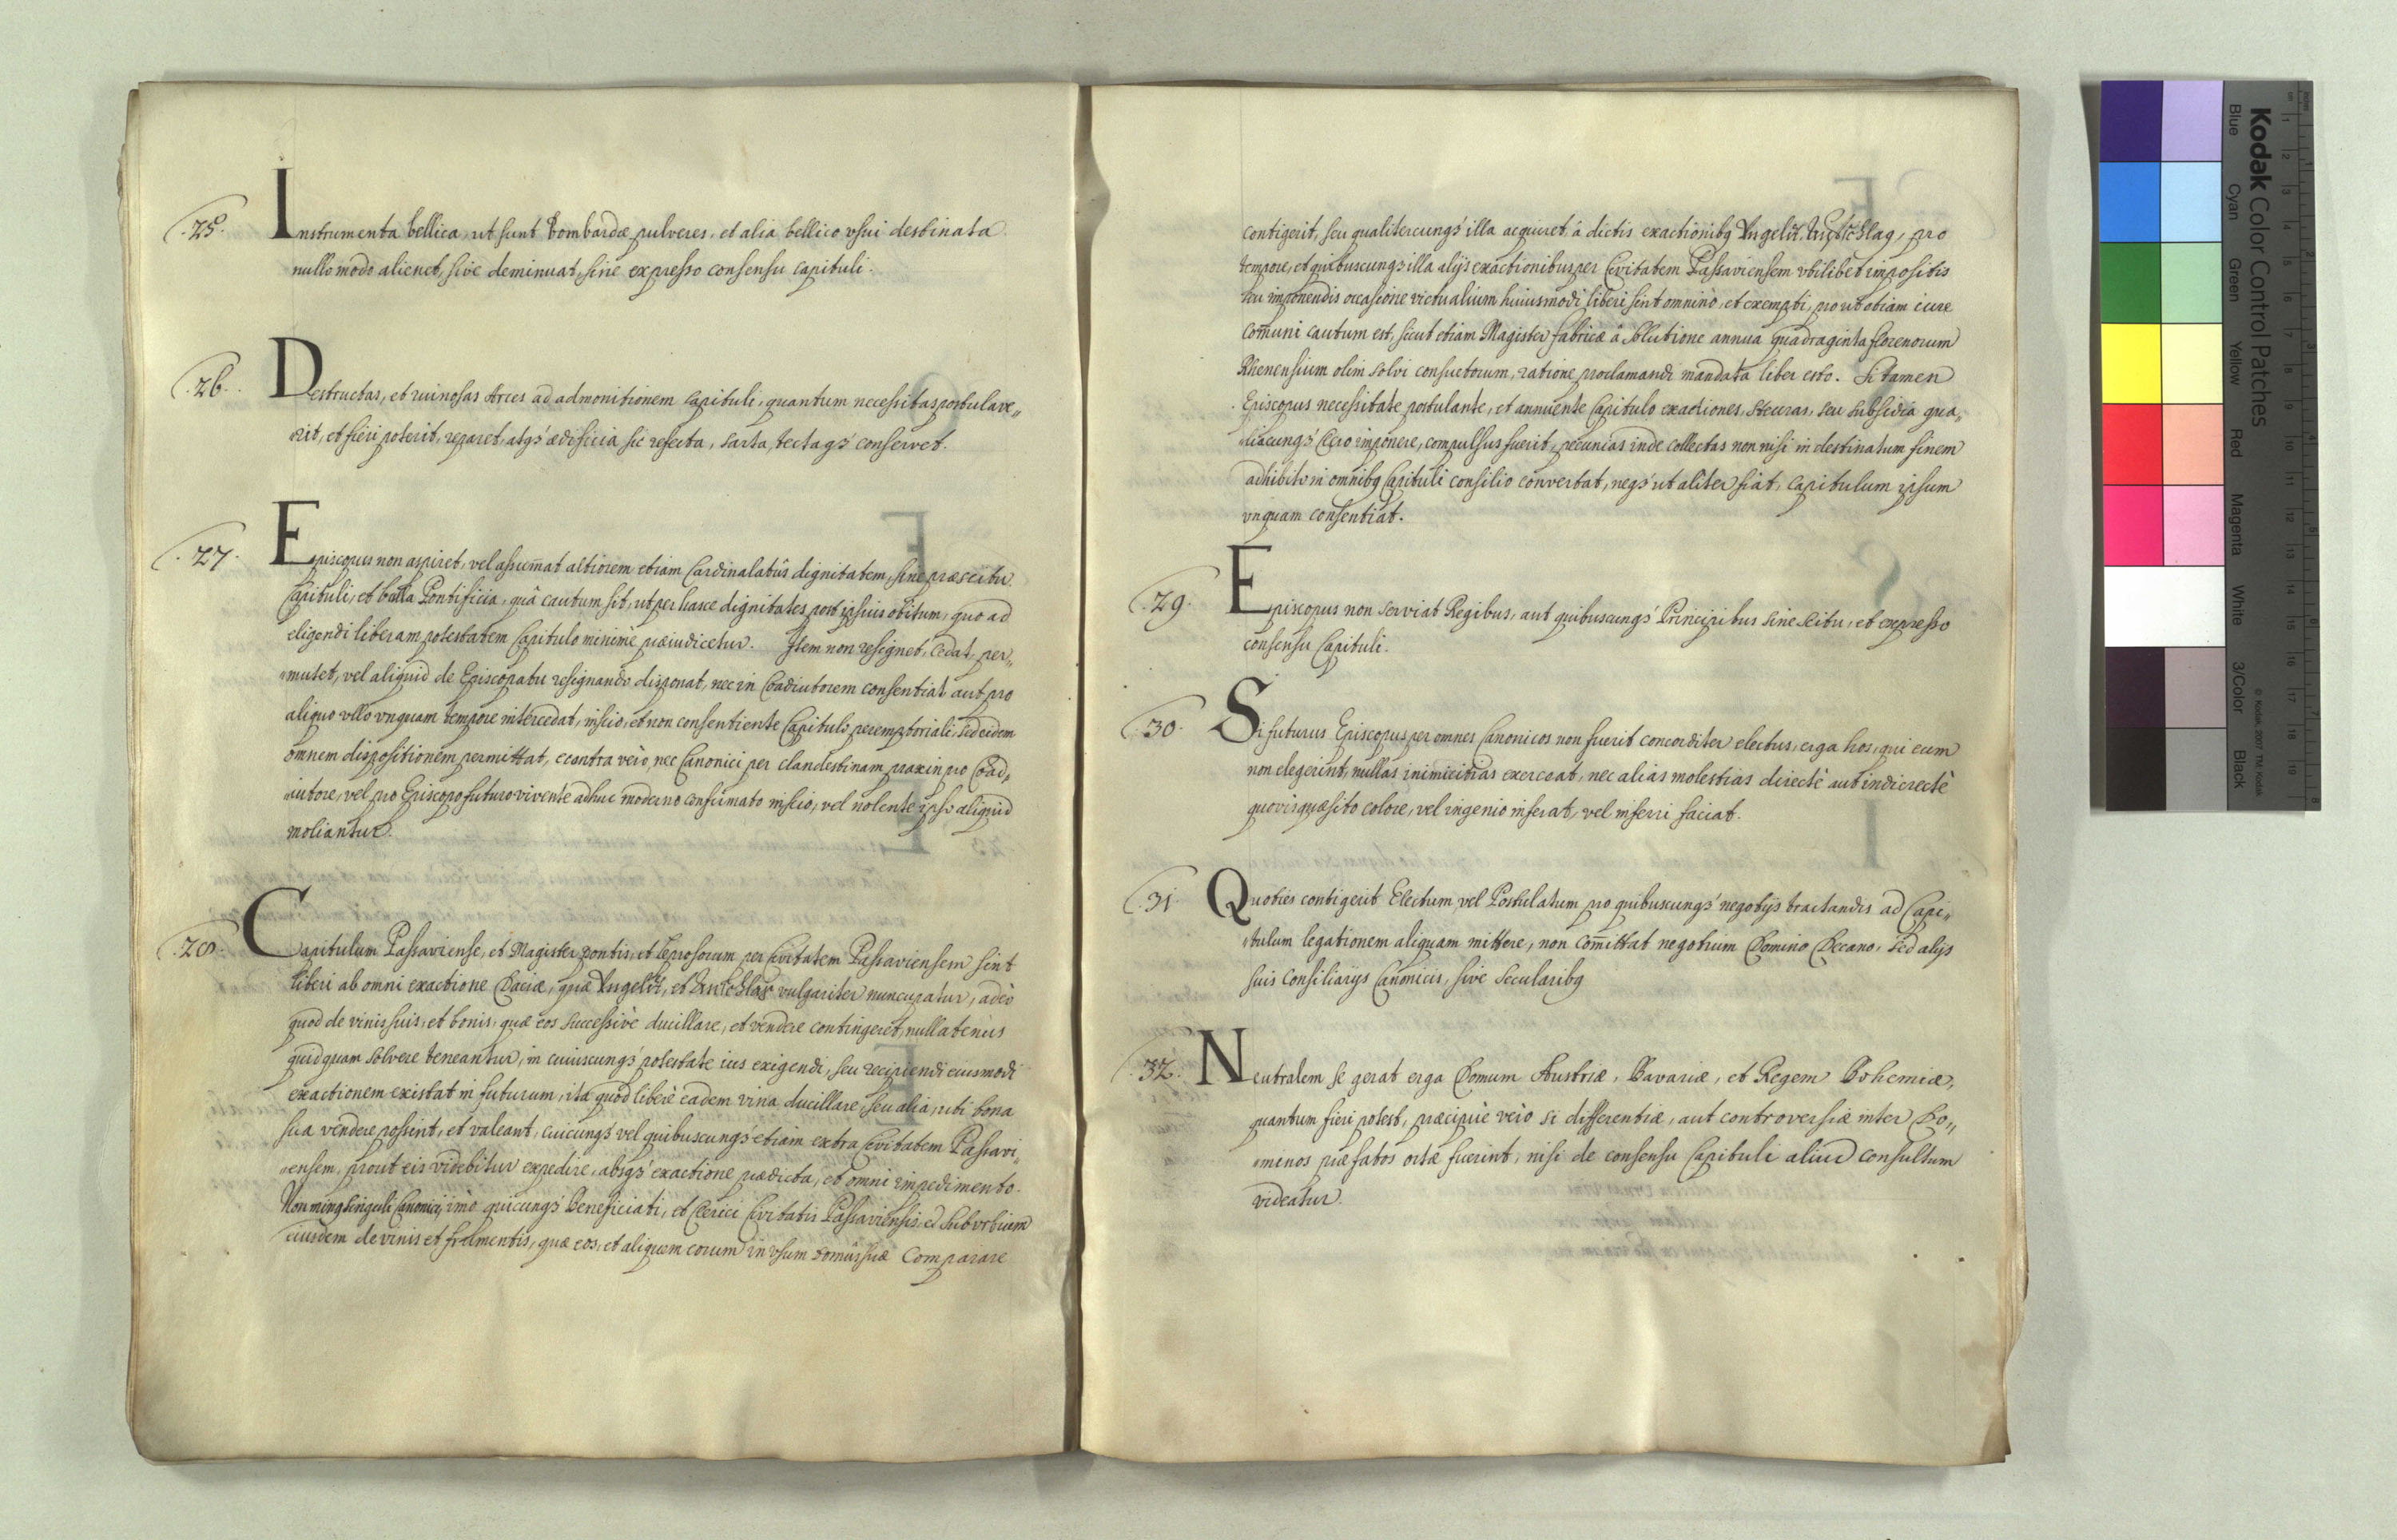 .25.
Instrumenta bellica, ut sunt Bombardæ, pulveres, et alia bellico vsui destinata
nullo modo alienet, sive deminuat, sine expresso consensu Capituli.
.26.
Destructas, et ruinosas Arces ad admonitionem Capituli, quantum necessitas postulave„
„rit, et fieri poterit, reparet, atq3 ædificia sic refecta, sarta, tectaq3 conservet.
.27.
Episcopus non aspiret, vel assum̄at altiorem etiam Cardinalatûs dignitatem, sine præscitu
Capituli, et bulla Pontificia, quâ cautum sit, ut per hasce dignitates post ipsius obitum, quo ad
eligendi liberam potestatem Capitulo minimè præiudicetur. Item non resignet, cedat, per„
„mutet, vel aliquid de Episcopatu resignando disponat, nec in Coadiutorem consentiat aut pro
aliquo vllo vnquam tempore intercedat, inscio, et non consentiente Capitulo peremptoriali, sed eidem
omnem dispositionem permittat, econtra verò, nec Canonici per clandestinam praxin pro Coad„
„iutore, vel pro Episcopo futuro vivente adhuc moderno confirmato inscio, vel nolente ipso aliquid
moliantur.
.28.
Capitulum Passaviense, et Magister pontis, et Leprosorum per Civitatem Passaviensem sint
liberi ab omni exactione Daciæ, quæ Vngelt, et Auffschlag vulgariter nuncupatur, adeò
quod de vinis suis, et bonis, quæ eos successivè ducillare, et vendere contingeret, nullatenùs
quidquam solvere teneantur, in cuiuscunq3 potestate ius exigendi, seu recipiendi eiusmodi
exactionem existat in futurum, ita quod liberè eadem vina ducillare, seu alia, uti bona
sua vendere possint, et valeant, cuicunq3 vel quibuscunq3 etiam extra Civitatem Passavi„
„ensem, prout eis videbitur expedire, absq3 exactione prædicta, et omni impedimento.
Non minq singuli Canonici, imò quicunq3 Beneficiati, et Clerici Civitatis Passaviensis, et suburbium
eiusdem de vinis et frumentis, quæ eos, et aliquem eorum in vsum domus suæ Comparare
contigerit, seu qualitercunq3 illa acquiret, à dictis exactionibq Vngelt, Auffschlag, pro
tempore, et quibuscunq3 illa alijs exactionibus per Civitatem Passaviensem vbilibet impositis
seu imponendis occasione victualium huiusmodi liberi sint omninò, et exempti, prout etiam iure
com̄uni cautum est, sicut etiam Magister fabricæ â solutione annua quadraginta florenorum
Rhenensium olim solvi consuetorum, ratione proclamandi mandata liber esto. Si tamen
Episcopus necessitate postulante, et annuente Capitulo exactiones, steuras, seu subsidia qua„
„liacunq3 Clero imponere, compulsus fuerit, pecunias inde collectas non nisi in destinatum finem
adhibito in omnibq Capituli consilio convertat, neq3 ut aliter fiat, Capitulum ipsum
vnquam consentiat.
.29.
Episcopus non serviat Regibus, aut quibuscunq3 Principibus sine scitu, et expresso
consensu Capituli.
.30.
Si futurus Episcopus per omnes Canonicos non fuerit concorditer electus, erga hos, qui eum
non elegerint, nullas inimicitias exerceat, nec alias molestias directè aut indirectè
quovis quæsito colore, vel ingenio inferat, vel inferri faciat.
.31.
Quoties contigerit Electum, vel Postulatum pro quibuscunq3 negotijs tractandis ad Capi„
„tulum legationem aliquam mittere, non com̄ittat negotium Domino Decano, sed alijs
suis Consiliarijs Canonicis, sive Secularibq
.32.
Neutralem se gerat erga Domum Austriæ, Bavariæ, et Regem Bohemiæ,
quantum fieri potest, præcipuè verò si differentiæ, aut controversiæ inter Do„
„minos præfatos ortæ fuerint, nisi de consensu Capituli aliud consultum
videatur.
Kodak Color Control Patches
Blue Cyan Green Yellow Red Magenta White 3/Color Black
© Kodak, 2007 TM: Kodak